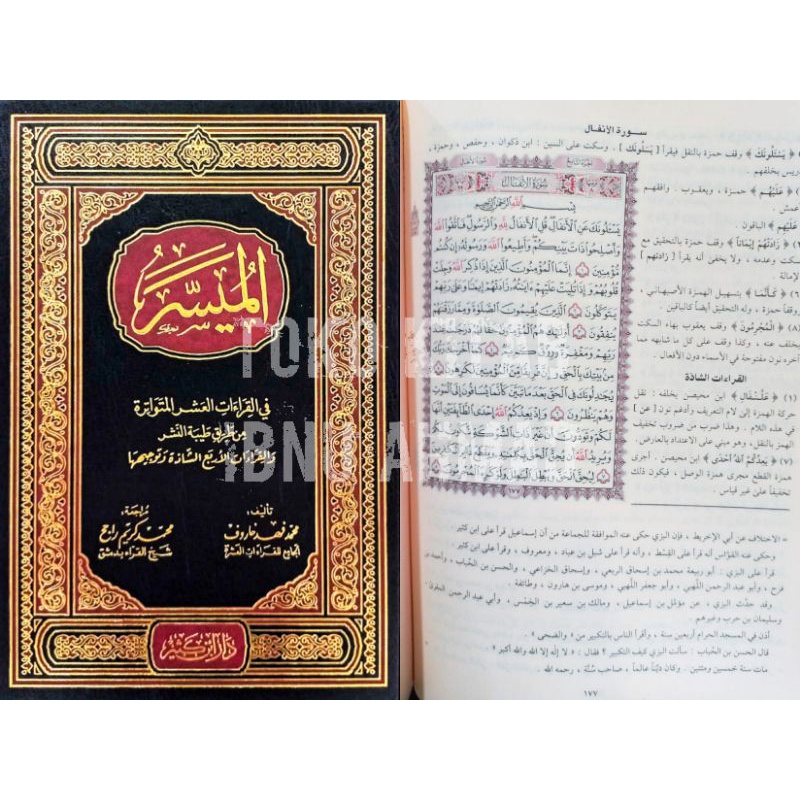 الميسر
في القراءات العشر المتواترة
من طريق طيبة النشر
والقراءات الأربع الشاذة وتوجيهها
تأليف
محمد فهد خاروف
الجامع للقراءات العشرة
مراجعة
محمد كريم راجح
شيخ القراء بدمشق
دار ابن كثير
TOKO KITAB
IBNU A
سورة الأنفال
﴿ يَسْئَلُونَكَ ﴾ وقف حمزة بالنقل فيقرأ [ يَسَلُونَك ] . وسكت على السين : ابن ذكوان ، وحفص ، وحمزة ،
وإدريس بخلفهم .
﴿ عَلَيْهُم ﴾ حمزة ، ويعقوب . وافقهم
الأعمش .
عَلَيْهِم ﴾ الباقون .
﴿ زَادَتْهُم إِيمَاناً ﴾ وقف حمزة بالتحقيق مع
السكت وعدمه ، ولا يخفى أنه يقرأ [ زادتهم ]
بالإمالة .
(٦) ﴿ كَأَنَّمَا ﴾ بتسهيل الهمزة الأصبهاني ،
وقفاً حمزة ، وله التحقيق أيضاً كالباقين .
(٨) ﴿ الْمُجْرِمُونَ ﴾ وقف يعقوب بهاء السكت
بخلف عنه ، وكذا وقف على كل ما شابهه مما
آخره نون مفتوحة في الأسماء دون الأفعال .
القراءات الشاذة
(١) ﴿ عَلَّنْفَال ﴾ ابن محيصن بخلفه : نقل
حركة الهمزة إلى لام التعريف وأدغم نون [ عن ]
في هذه اللام . وهذا ضرب من ضروب تخفيف
الهمز بالنقل، وهو مبني على الاعتداد بالعارض.
(٧) ﴿ يَعِدُكُمُ اللَّهُ احْدَى ﴾ ابن محيصن . أجرى
همزة القطع مجرى همزة الوصل ، فيكون ذلك
تخفيفاً على غير قياس .
سورة الأنفال
بسم الله الرحمن الرحيم
يَسْـَٔلُونَكَ عَنِ ٱلْأَنفَالِ قُلِ ٱلْأَنفَالُ لِلَّهِ وَٱلرَّسُولِ فَٱتَّقُوا۟ ٱللَّهَ
وَأَصْلِحُوا۟ ذَاتَ بَيْنِكُمْ وَأَطِيعُوا۟ ٱللَّهَ وَرَسُولَهُۥٓ إِن كُنتُم
مُّؤْمِنِينَ ١ إِنَّمَا ٱلْمُؤْمِنُونَ ٱلَّذِينَ إِذَا ذُكِرَ ٱللَّهُ وَجِلَتْ
قُلُوبُهُمْ وَإِذَا تُلِيَتْ عَلَيْهِمْ ءَايَٰتُهُۥ زَادَتْهُمْ إِيمَٰنًا وَعَلَىٰ رَبِّهِمْ
يَتَوَكَّلُونَ ٢ ٱلَّذِينَ يُقِيمُونَ ٱلصَّلَوٰةَ وَمِمَّا رَزَقْنَٰهُمْ
يُنفِقُونَ ٣ أُو۟لَٰٓئِكَ هُمُ ٱلْمُؤْمِنُونَ حَقًّا لَّهُمْ دَرَجَٰتٌ عِندَ
رَبِّهِمْ وَمَغْفِرَةٌ وَرِزْقٌ كَرِيمٌ ٤ كَمَآ أَخْرَجَكَ رَبُّكَ
مِنۢ بَيْتِكَ بِٱلْحَقِّ وَإِنَّ فَرِيقًا مِّنَ ٱلْمُؤْمِنِينَ لَكَٰرِهُونَ ٥
يُجَٰدِلُونَكَ فِى ٱلْحَقِّ بَعْدَ مَا تَبَيَّنَ كَأَنَّمَا يُسَاقُونَ إِلَى ٱلْمَوْتِ
وَهُمْ يَنظُرُونَ ٦ وَإِذْ يَعِدُكُمُ ٱللَّهُ إِحْدَى ٱلطَّآئِفَتَيْنِ أَنَّهَا
لَكُمْ وَتَوَدُّونَ أَنَّ غَيْرَ ذَاتِ ٱلشَّوْكَةِ تَكُونُ لَكُمْ
وَيُرِيدُ ٱللَّهُ أَن يُحِقَّ ٱلْحَقَّ بِكَلِمَٰتِهِۦ وَيَقْطَعَ دَابِرَ ٱلْكَٰفِرِينَ ٧
لِيُحِقَّ ٱلْحَقَّ وَيُبْطِلَ ٱلْبَٰطِلَ وَلَوْ كَرِهَ ٱلْمُجْرِمُونَ ٨
١٧٧
* الاختلاف عن أبي الأخريط ، فإن البزي حكى عنه الموافقة للجماعة من أن إسماعيل قرأ على ابن كثير
وحكى عنه القوَّاس أنه قرأ على القسط ، وأنه قرأ على شبل بن عباد ، ومعروف ، وقرآ على ابن كثير .
قرأ على البزي : أبو ربيعة محمد بن إسحاق الربعي ، وإسحاق الخزاعي ، والحسن بن الحُباب ، وأحمد بن
فرح ، وأبو عبد الرحمن اللهبي ، وأبو جعفر اللهبي ، وموسى بن هارون ، وطائفة .
وقد حدّث البزي ، عن مؤمّل بن إسماعيل ، ومالك بن سعير بن الخِمْس ، وأبي عبد الرحمن المقرئ ،
وسليمان بن حرب وغيرهم .
أذن في المسجد الحرام أربعين سنة ، وأقرأ الناس بالتكبير من « والضحى » .
قال الحسن بن الحُباب : سألت البزي كيف التكبير ؟ فقال : « لا إله إلا الله والله أكبر » .
مات سنة خمسين ومئتين . وكان ديِّناً عالماً ، صاحب سُنَّة ، رحمه الله .
١٧٧